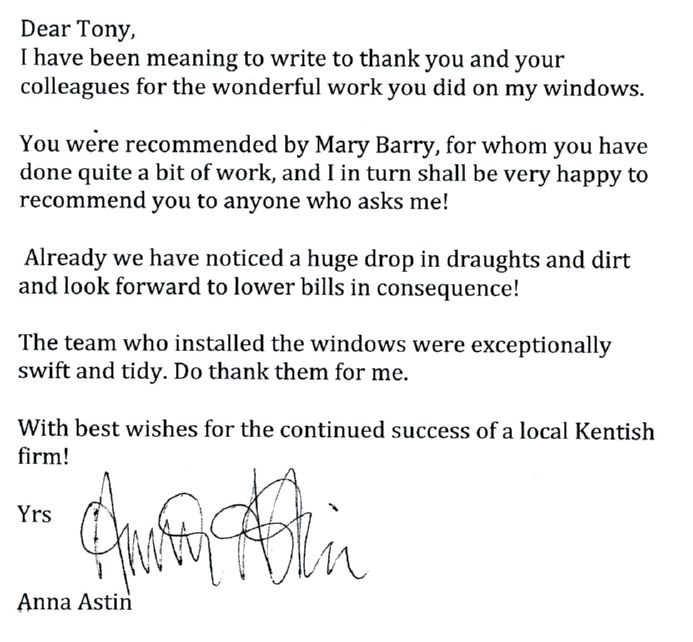 Dear Tony,
I have been meaning to write to thank you and your
colleagues for the wonderful work you did on my windows.
You were recommended by Mary Barry, for whom you have
done quite a bit of work, and I in turn shall be very happy to
recommend you to anyone who asks me!
Already we have noticed a huge drop in draughts and dirt
and look forward to lower bills in consequence!
The team who installed the windows were exceptionally
swift and tidy. Do thank them for me.
With best wishes for the continued success of a local Kentish
firm!
Yrs
Anna Astin
Anna Astin